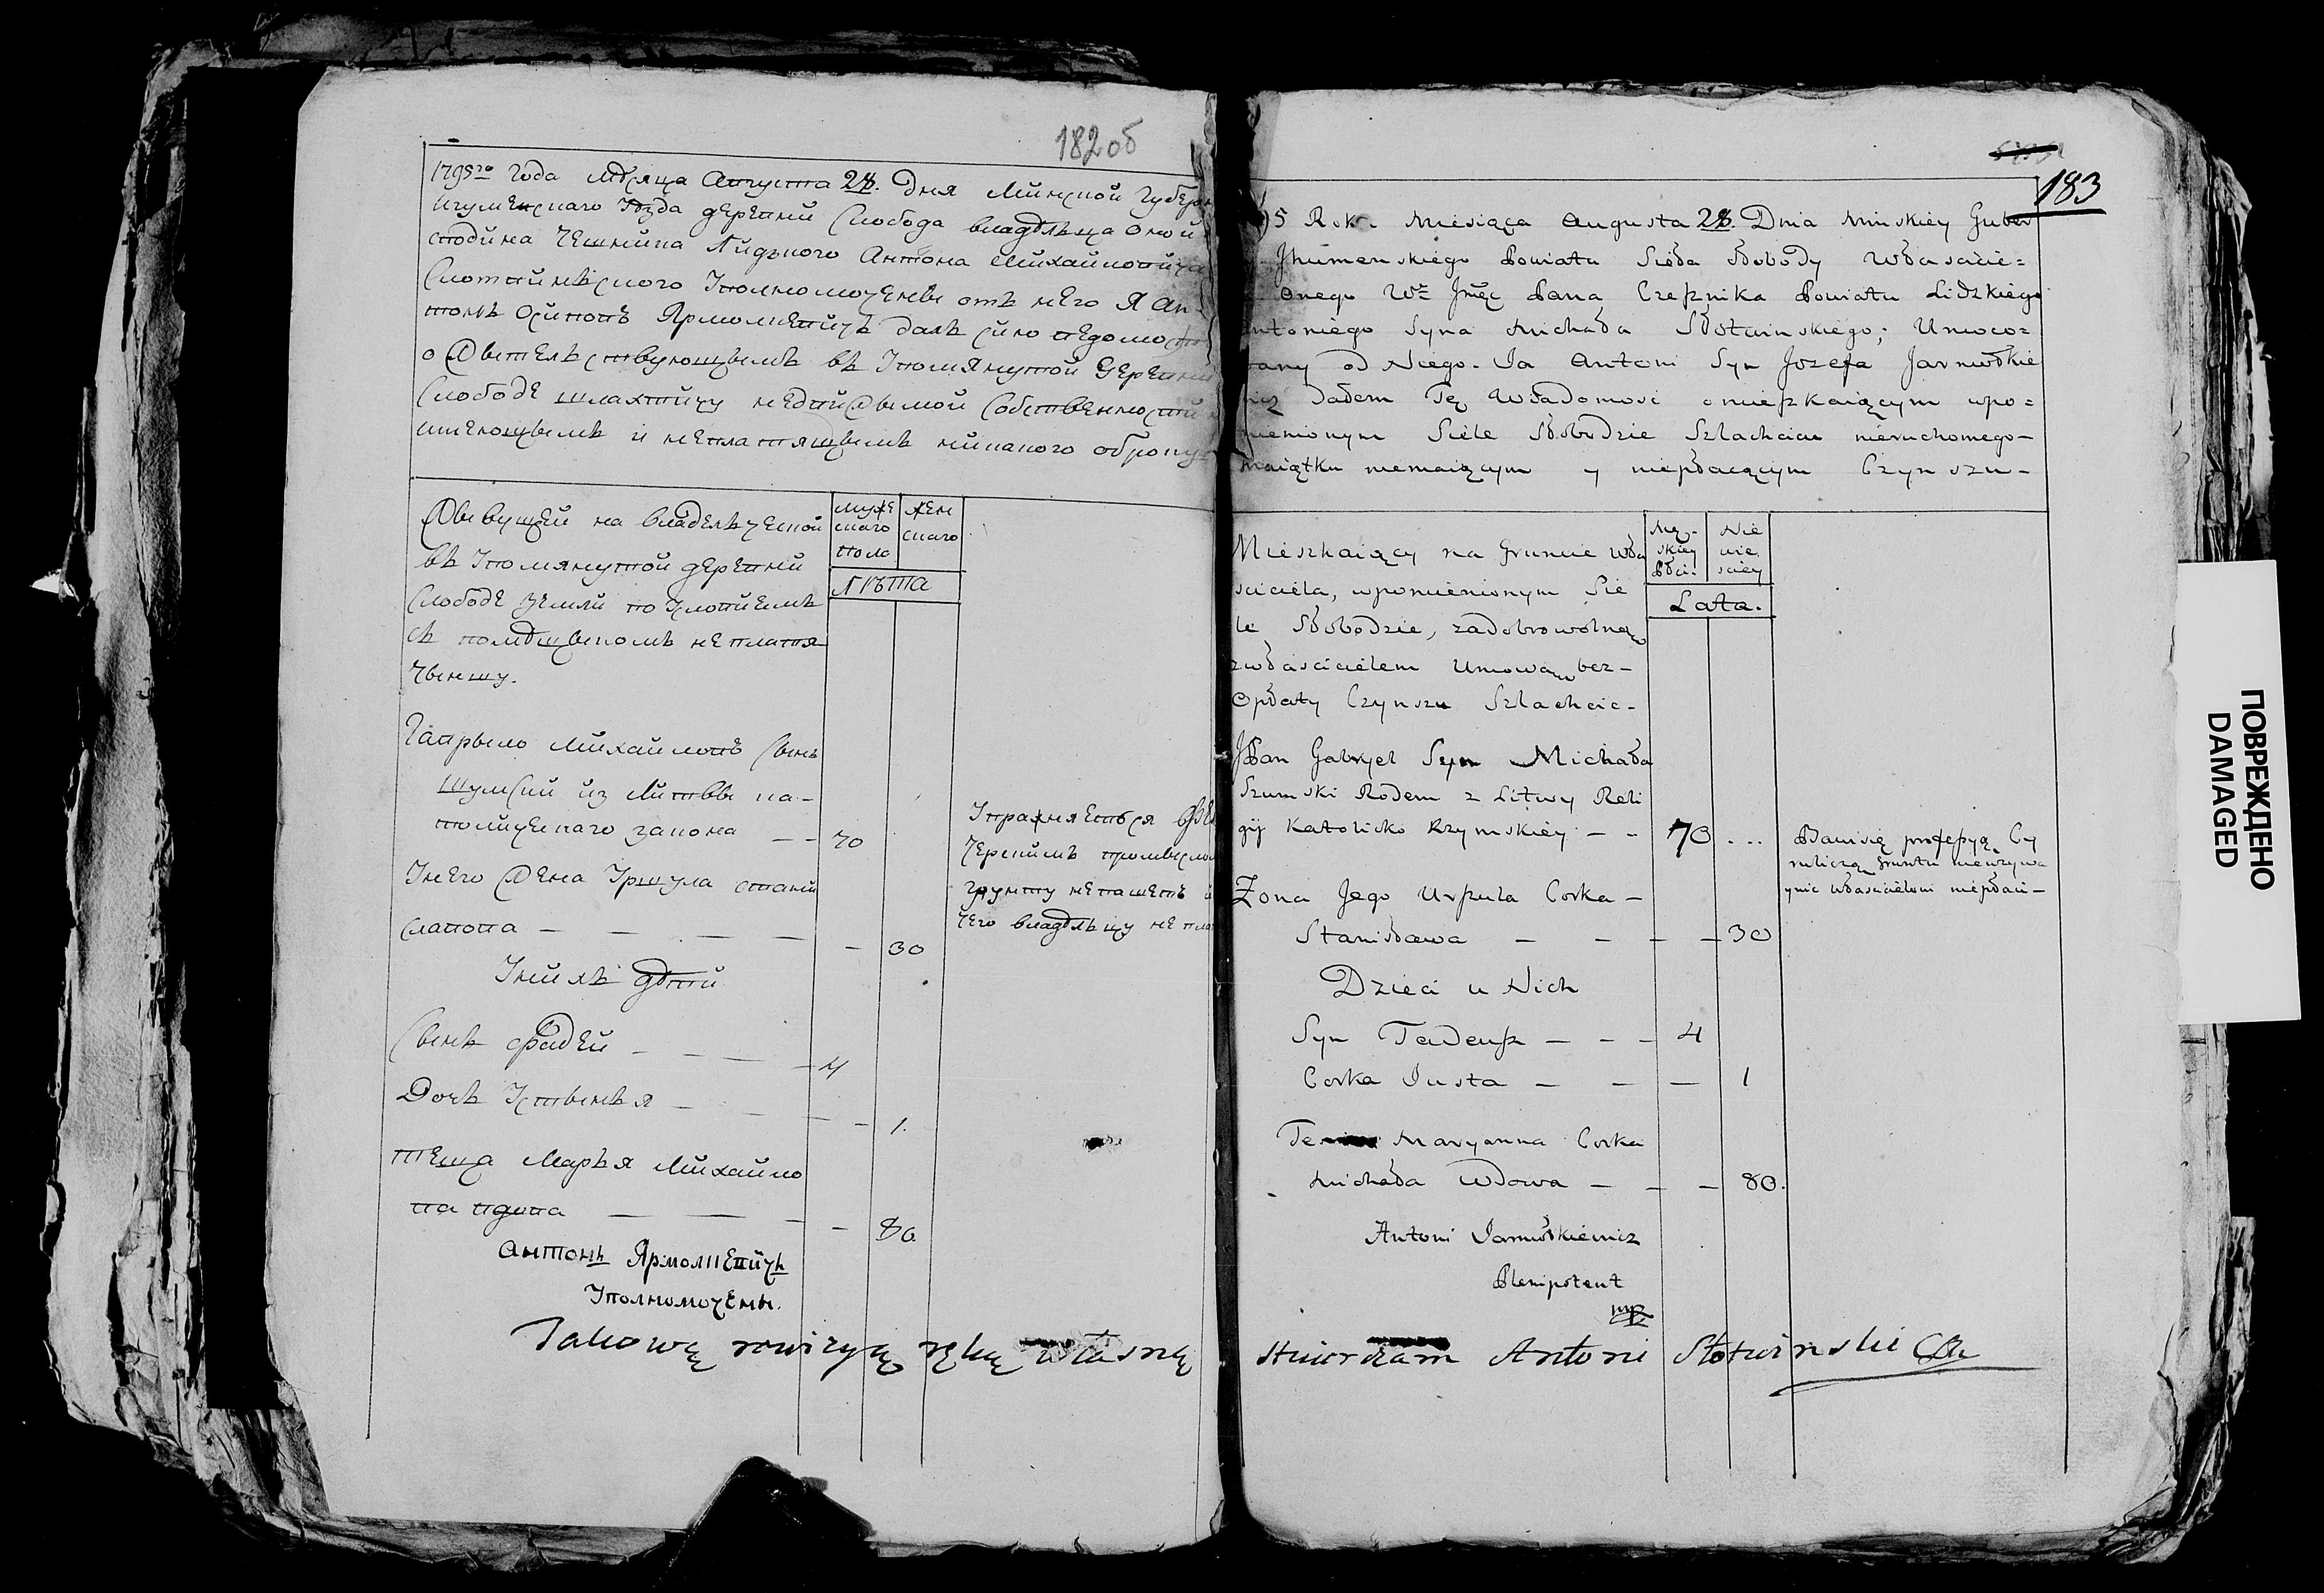 182 об
1795го года мѣсяца августа 28. дня Минской губерн
Игуменскаго уѣзда деревни Слобода владѣльца оной
сподина чешника Лидзкого Антона Михайловича
Слотвинского уполномоченны отъ него я Ан-
тонъ Осиповъ Ярмолкевичъ далъ сию ведомо
о жительствующымъ въ упомянутой деревни
Слободе шляхтичу недвижымой собственности
имеющымъ и неплатящымъ никакого оброку
Жывущей на владелческой
въ упомянутой деревни
Слободе земли по условиемъ
съ помѣщыкомъ не платя
чыншу.
мужескаго пола
женскаго
лѣта
Гаврыло Михайловъ сынъ
Шумский из Литвы ка-
толическаго закона — — 70
Унего жена Уршула Стани
славова — — — — — 30
Упражняеться
промыслом
грунту не пашетъ и
чего владѣльцу не пла
Унихъ дѣти
Сынъ Фадей — — — — 4
Дочь Устынья — — — — 1.
теща Марья Михайло
ва вдова — — — — 80
Антонъ Ярмолкевичъ
Уполномочены.
Takową rewizyą ręką własną
183
95 Roku Miesiąca Augusta 28. Dnia Minskiey Guber
Jhumenskiego Powiatu Sioła Słobody Własciciе=
onego Wo Jmę Pana Czesznika Powiatu Lidzkiego
Antoniego Syna Michała Słotwinskiego; Umoco=
wany od Niego. Ja Antoni Syn Jozefa Jarmołkie
wicz dałem Tę Wiadomosc o mieszkaiącym wpo=
mienionym Siele Słobodzie Szlachcicu nieruchomego—
Maiątku niemaiącym y niepłacącym Czynszu—
Mieszkaiący na Gruncie Wła
sciciela, wpomienionym Sie
le Słobodzie, zadobrowolną
zwłascicielem Umową bez—
Opłaty Czynszu Szlachcic—
Męskiey Płci.
Niewiesciey
Lata.
JPan Gabryel Syn Michała
Szumski Rodem z Litwy Reli
gij Katolicko Rzymskiey — — 70 ...
Bawi się professyą Cy
rulicką Gruntu nieużywa
y nic Włascicielowi niepłaci—
Zona Jego Urszula Corka —
Stanisława — — — — 30
Dzieci u Nich
Syn Tadeusz — — — 4
Corka Justa — — — 1
Maryanna Corka
Michała Wdowa — — — 80.
Antoni Jarmołkiewicz
Plenipotent
mp
stwierdzam Antoni Słotwinski
ПОВРЕЖДЕНО
DAMAGED